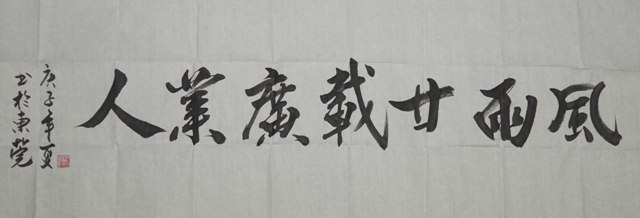 風雨廿載廣業人
庚子年夏
书於東莞